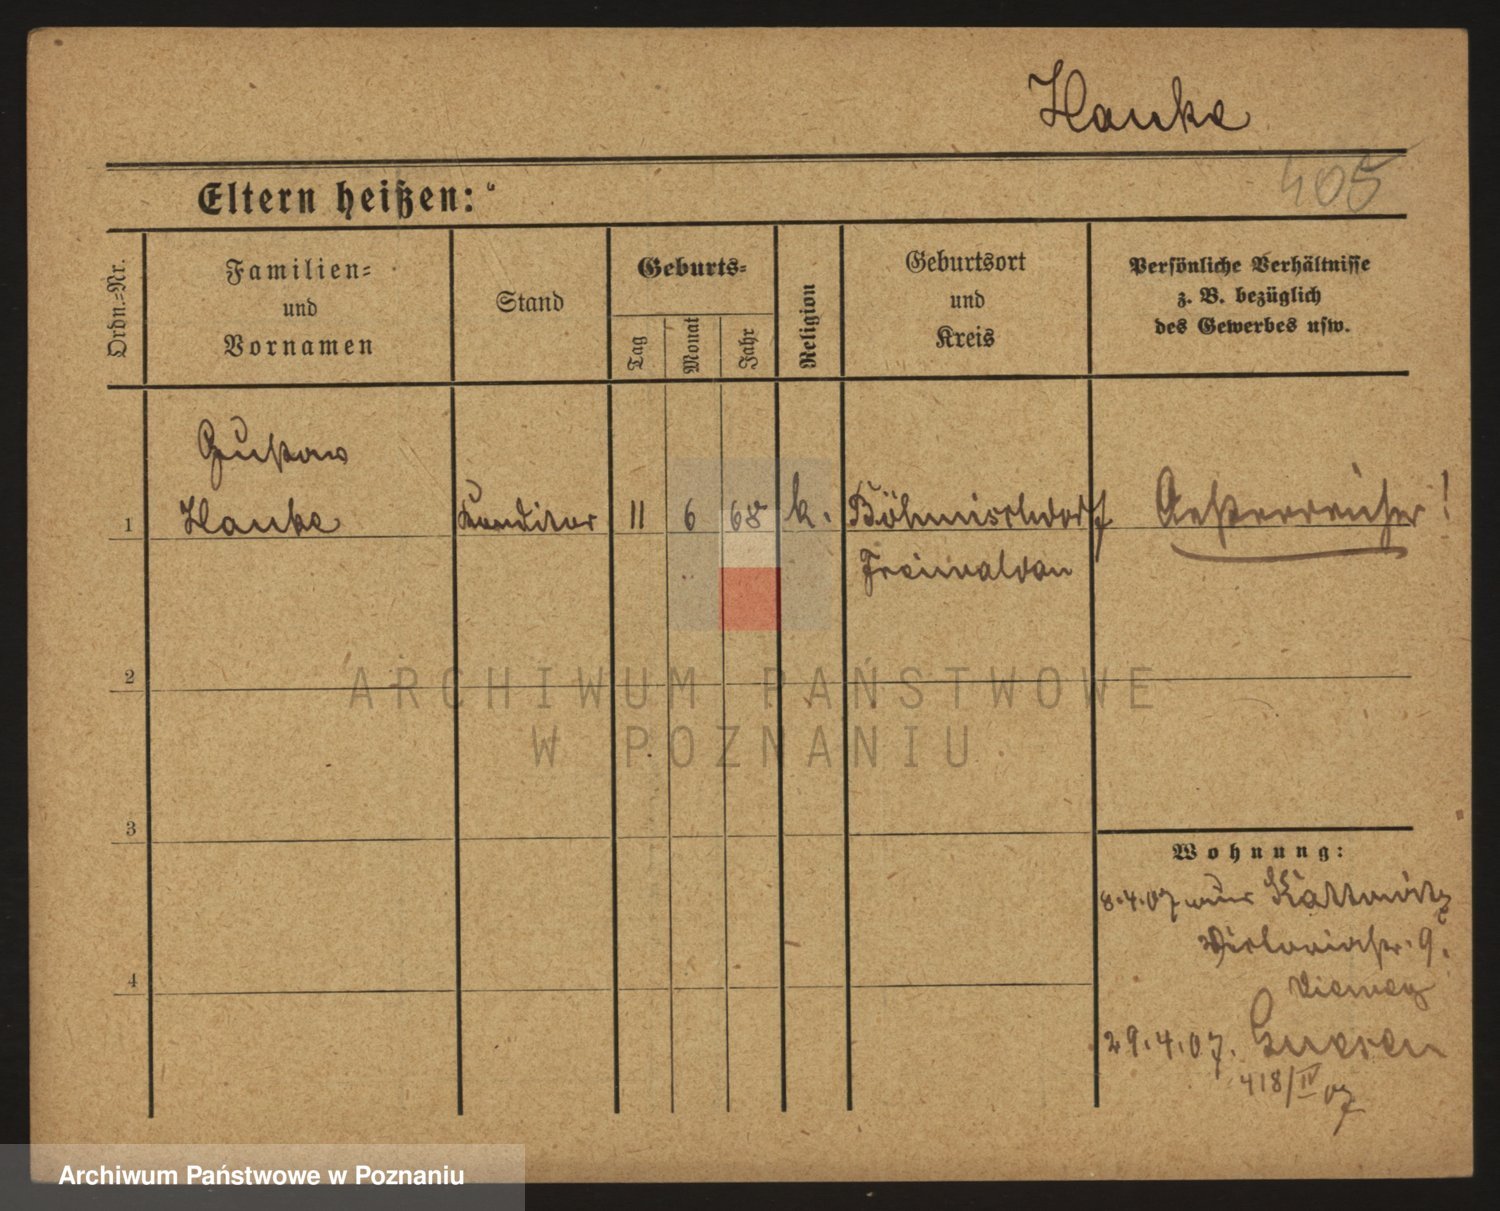 Hanke
405
Eltern heißen:
Ordn.-Nr.
Familien-
und
Vornamen
Stand
Geburts-
Tag
Monat
Jahr
Religion
Geburtsort
und
Kreis
Persönliche Verhältnisse
z. B. bezüglich
des Gewerbes usw.
Gustav
1 Hanke Konditor 11 6 68 k. Böhmischdorf Oesterreicher!
Freiwaldau
2
ARCHIWUM PAŃSTWOWE
W POZNANIU
3
Wohnung:
8.4.07 Kattowitz
Victoriastr. 9.
4
29.4.07. Gnesen
418/IV 07
Archiwum Państwowe w Poznaniu